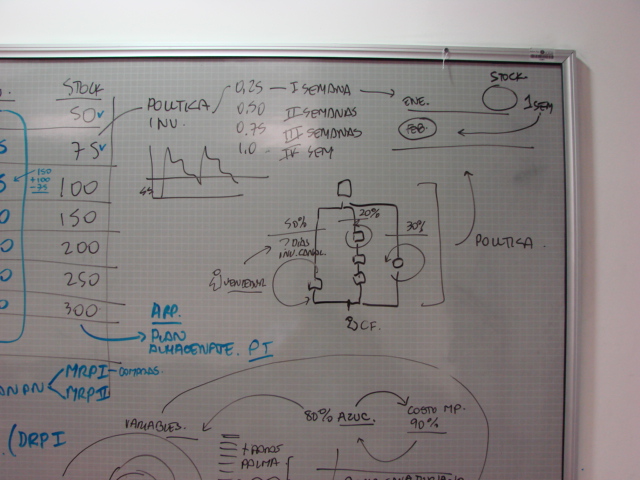 STOCK
50
75
100
150
200
250
300
150
+100
-75
POLITICA
INV.
0,25 — I SEMANA
0,50 II SEMANAS
0.75 III SEMANAS
1.0 - IV SEM
STOCK
ENE.
1 SEM
FEB.
45
50%
20%
30%
7 DIAS
INV. CANAL
POLITICA.
CF.
APP.
PLAN
PI
MRPI - DEMANDAS
MRP II
(DRP I
VARIABLES.
80% AZUC.
COSTO MP.
90%
PALMA